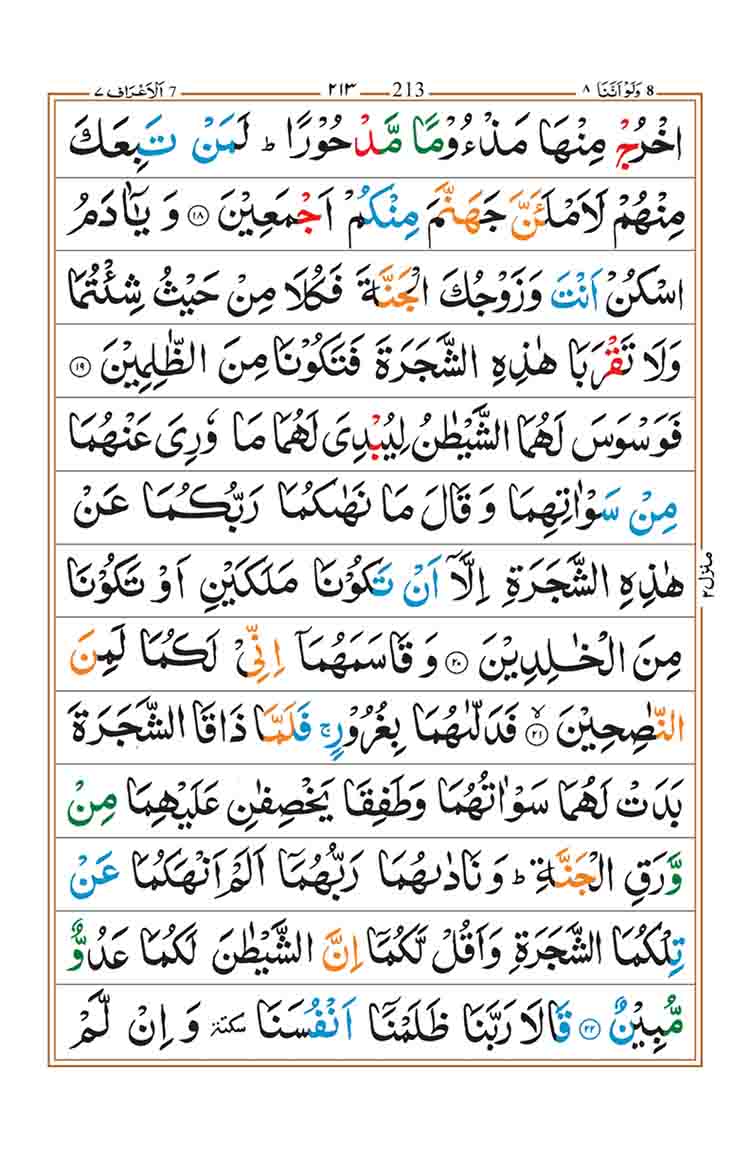 8 وَلَوْ اَنَّنَا ٨ 213 ٢١٣ 7 اَلْاَعْرَاف ٧
اخْرُجْ مِنْهَا مَذْءُوْمًا مَّدْحُوْرًا ؕ لَمَنْ تَبِعَكَ
مِنْهُمْ لَاَمْلَئَنَّ جَهَنَّمَ مِنْكُمْ اَجْمَعِيْنَ ۝۱۸ وَ يٰۤاٰدَمُ
اسْكُنْ اَنْتَ وَزَوْجُكَ الْجَنَّةَ فَكُلَا مِنْ حَيْثُ شِئْتُمَا
وَلَا تَقْرَبَا هٰذِهِ الشَّجَرَةَ فَتَكُوْنَا مِنَ الظّٰلِمِيْنَ ۝۱۹
فَوَسْوَسَ لَهُمَا الشَّيْطٰنُ لِيُبْدِيَ لَهُمَا مَا وٗرِيَ عَنْهُمَا
مِنْ سَوْاٰتِهِمَا وَ قَالَ مَا نَهٰىكُمَا رَبُّكُمَا عَنْ
هٰذِهِ الشَّجَرَةِ اِلَّاۤ اَنْ تَكُوْنَا مَلَكَيْنِ اَوْ تَكُوْنَا
مِنَ الْخٰلِدِيْنَ ۝۲۰ وَ قَاسَمَهُمَاۤ اِنِّيْ لَكُمَا لَمِنَ
النّٰصِحِيْنَ ۝۲۱ۙ فَدَلّٰىهُمَا بِغُرُوْرٍ ۚ فَلَمَّا ذَاقَا الشَّجَرَةَ
بَدَتْ لَهُمَا سَوْاٰتُهُمَا وَطَفِقَا يَخْصِفٰنِ عَلَيْهِمَا مِنْ
وَّرَقِ الْجَنَّةِ ؕ وَ نَادٰىهُمَا رَبُّهُمَاۤ اَلَمْ اَنْهَكُمَا عَنْ
تِلْكُمَا الشَّجَرَةِ وَاَقُلْ لَّكُمَاۤ اِنَّ الشَّيْطٰنَ لَكُمَا عَدُوٌّ
مُّبِيْنٌ ۝۲۲ قَالَا رَبَّنَا ظَلَمْنَاۤ اَنْفُسَنَا سكتة وَ اِنْ لَّمْ
منزل ٢